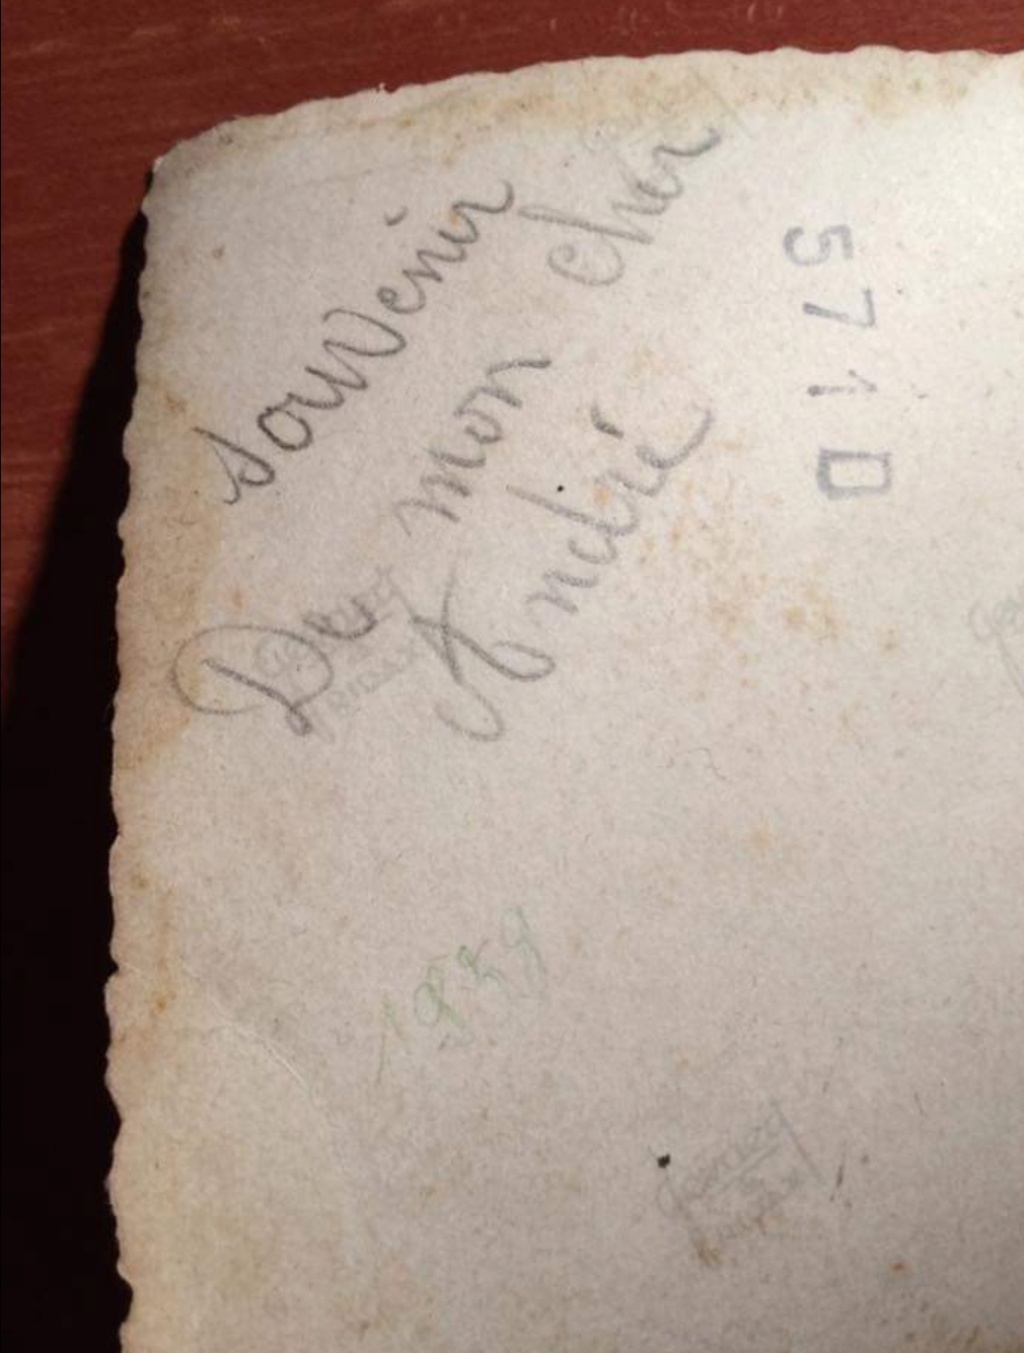 souvenir
De mon cher
André
5710
1939